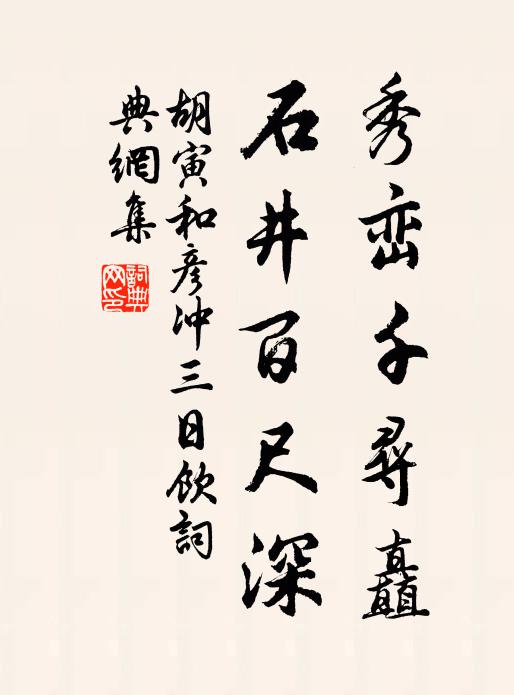 秀峦千寻矗
石井百尺深
胡寅和彦冲三日飲詞
典網集
詞典网印